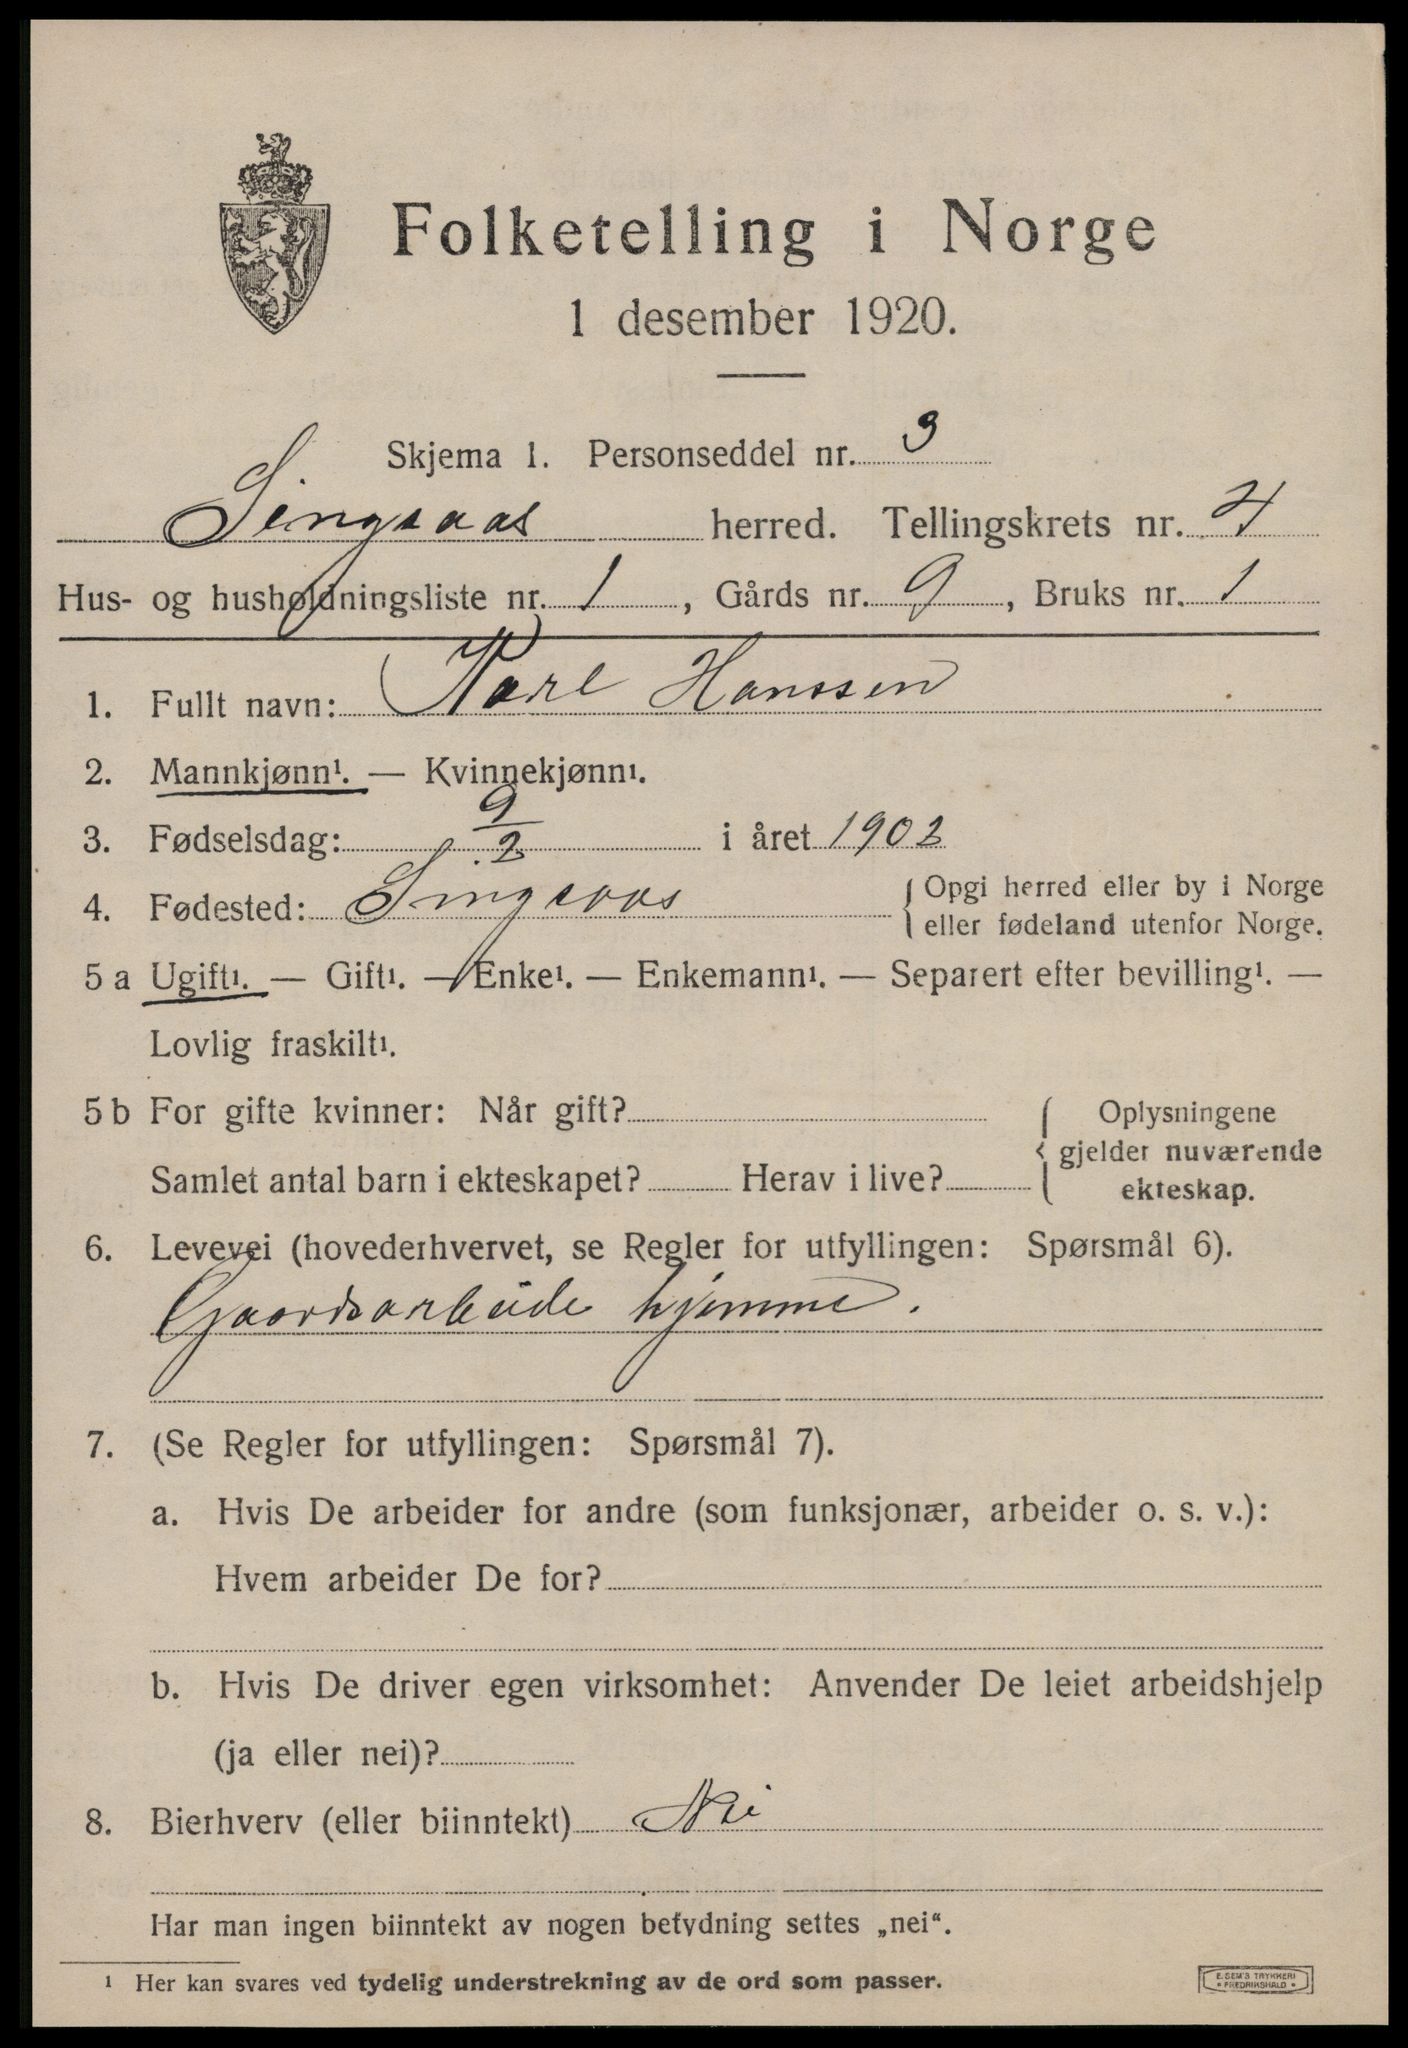 Folketelling i Norge
1 desember 1920.
Skjema 1. Personseddel nr. 3
Singsaas herred. Tellingskrets nr. 4
Hus- og husholdningsliste nr. 1, Gårds nr. 9, Bruks nr. 1
1. Fullt navn: Karl Hanssen
2. Mannkjønn¹. — Kvinnekjønn¹.
3. Fødselsdag: 9/2 i året 1902
4. Fødested: Singsaas { Opgi herred eller by i Norge
eller fødeland utenfor Norge.
5 a Ugift¹. — Gift¹. — Enke¹. — Enkemann¹. — Separert efter bevilling¹. —
Lovlig fraskilt¹.
5 b For gifte kvinner: Når gift? { Oplysningene
gjelder nuværende
Samlet antal barn i ekteskapet? Herav i live? ekteskap.
6. Levevei (hovederhvervet, se Regler for utfyllingen: Spørsmål 6).
Gaardsarbeide hjemme.
7. (Se Regler for utfyllingen: Spørsmål 7).
a. Hvis De arbeider for andre (som funksjonær, arbeider o. s. v.):
Hvem arbeider De for?
b. Hvis De driver egen virksomhet: Anvender De leiet arbeidshjelp
(ja eller nei)?
8. Bierhverv (eller biinntekt) Nei
Har man ingen biinntekt av nogen betydning settes „nei“.
¹ Her kan svares ved tydelig understrekning av de ord som passer.
E. SEM'S TRYKKERI
• FREDRIKSHALD •